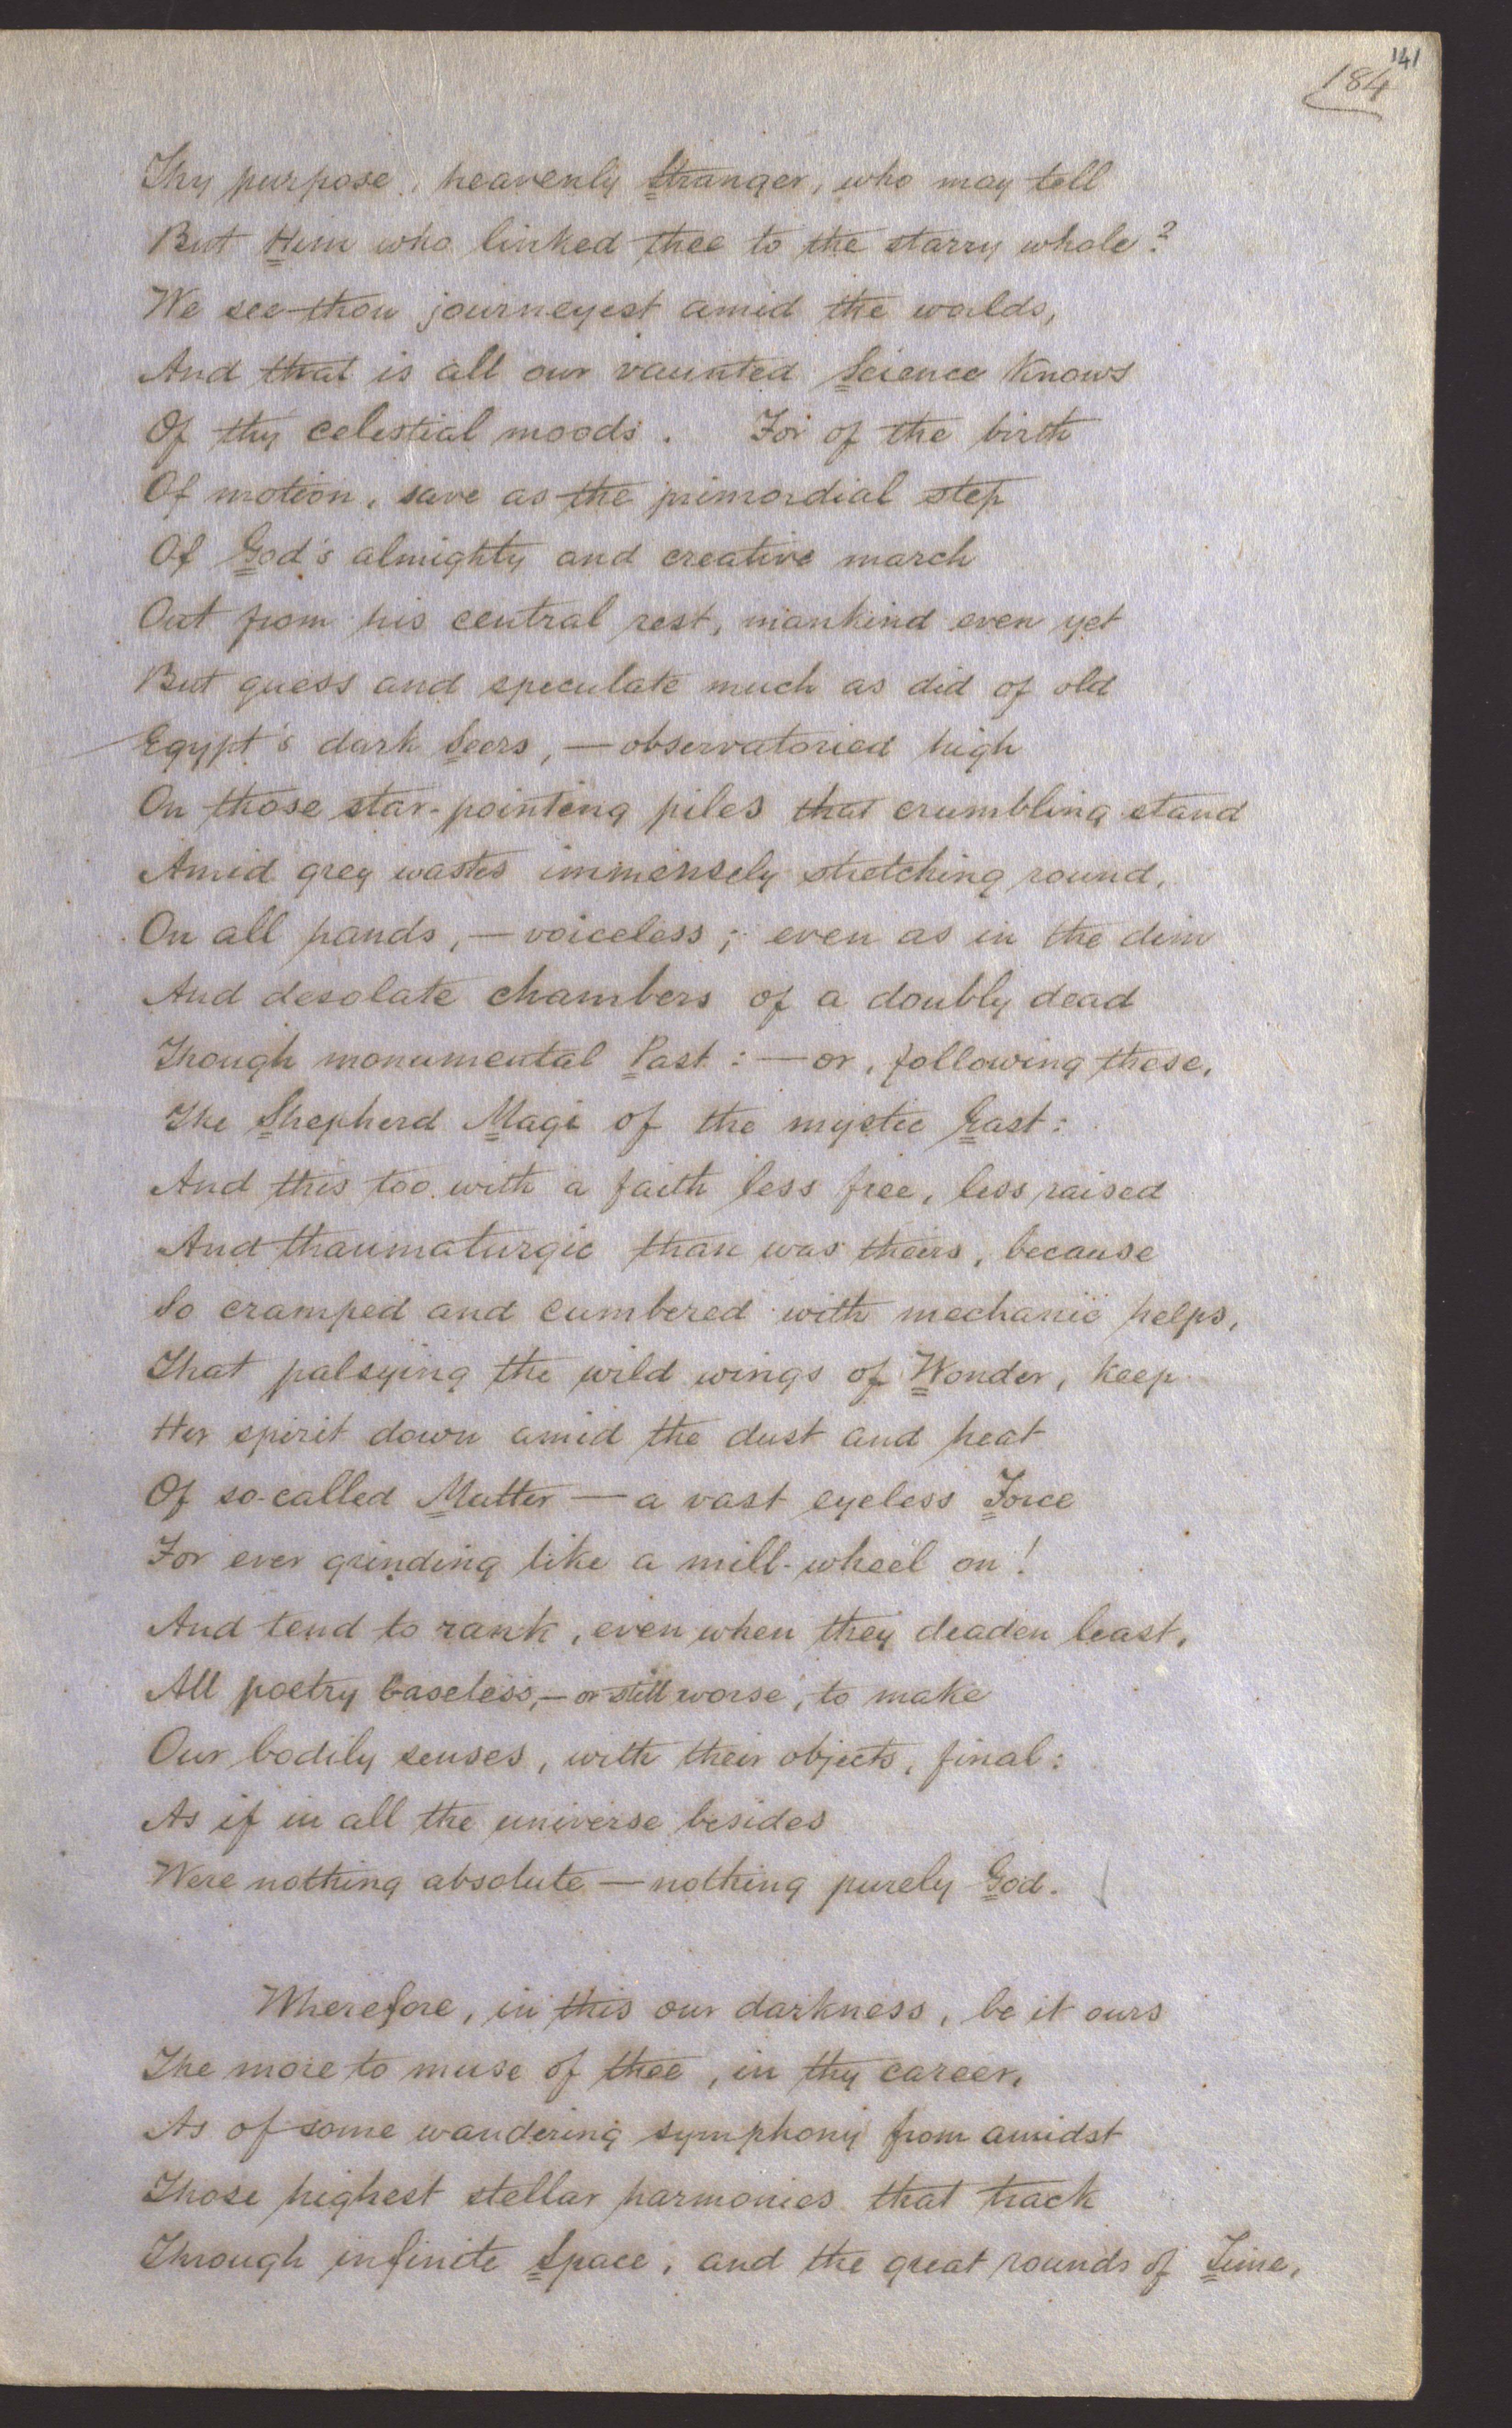 141
184
Thy purpose, heavenly Stranger, who may tell
But Him who linked thee to the starry whole?
We see thou journeyest amid the worlds,
And that is all our vaunted Science knows
Of thy celestial moods. For of the birth
Of motion, save as the primordial step
Of God's almighty and creative march
Out from his central rest, mankind even yet
But guess and speculate much as did of old
Egypt's dark Seers, — observatoried high
On those star-pointing piles that crumbling stand
Amid grey wastes immensely stretching round,
On all hands, — voiceless; even as in the dim
And desolate chambers of a doubly dead
Though monumental Past: — or, following these,
The Shepherd Magi of the mystic East:
And this too with a faith less free, less raised
And thaumaturgic than was theirs, because
So cramped and cumbered with mechanic helps,
That palsying the wild wings of Wonder, keep
Her spirit down amid the dust and heat
Of so-called Matter — a vast eyeless Force
For ever grinding like a mill-wheel on!
And tend to rank, even when they deaden least,
All poetry baseless, — or still worse, to make
Our bodily senses, with their objects, final:
As if in all the universe besides
Were nothing absolute — nothing purely God.
Wherefore, in this our darkness, be it ours
The more to muse of thee, in thy career,
As of some wandering symphony from amidst
Those highest stellar harmonies that track
Through infinite Space, and the great rounds of Time,